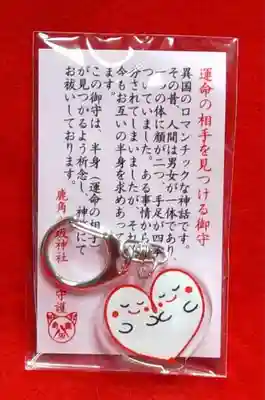 運命の相手を見つける御守
異国のロマンチックな神話です。
その昔、人間は男女が一体であり、
一つの体に顔が二つ、手足が四
ついていました。ある事情から
分されてしまいましたが、それ
今もお互いの半身を求めあっ
ます。
この御守は、半身(運命の相手)
が見つかるよう祈念し、神
にて
お祓いしております。
鹿角
坂神社
守護